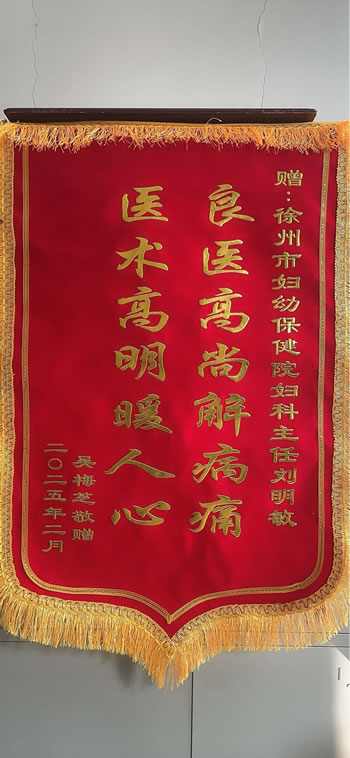 赠：徐州市妇幼保健院妇科主任刘明敏
良医高尚解病痛
医术高明暖人心
吴梅芝敬赠
二〇二五年二月